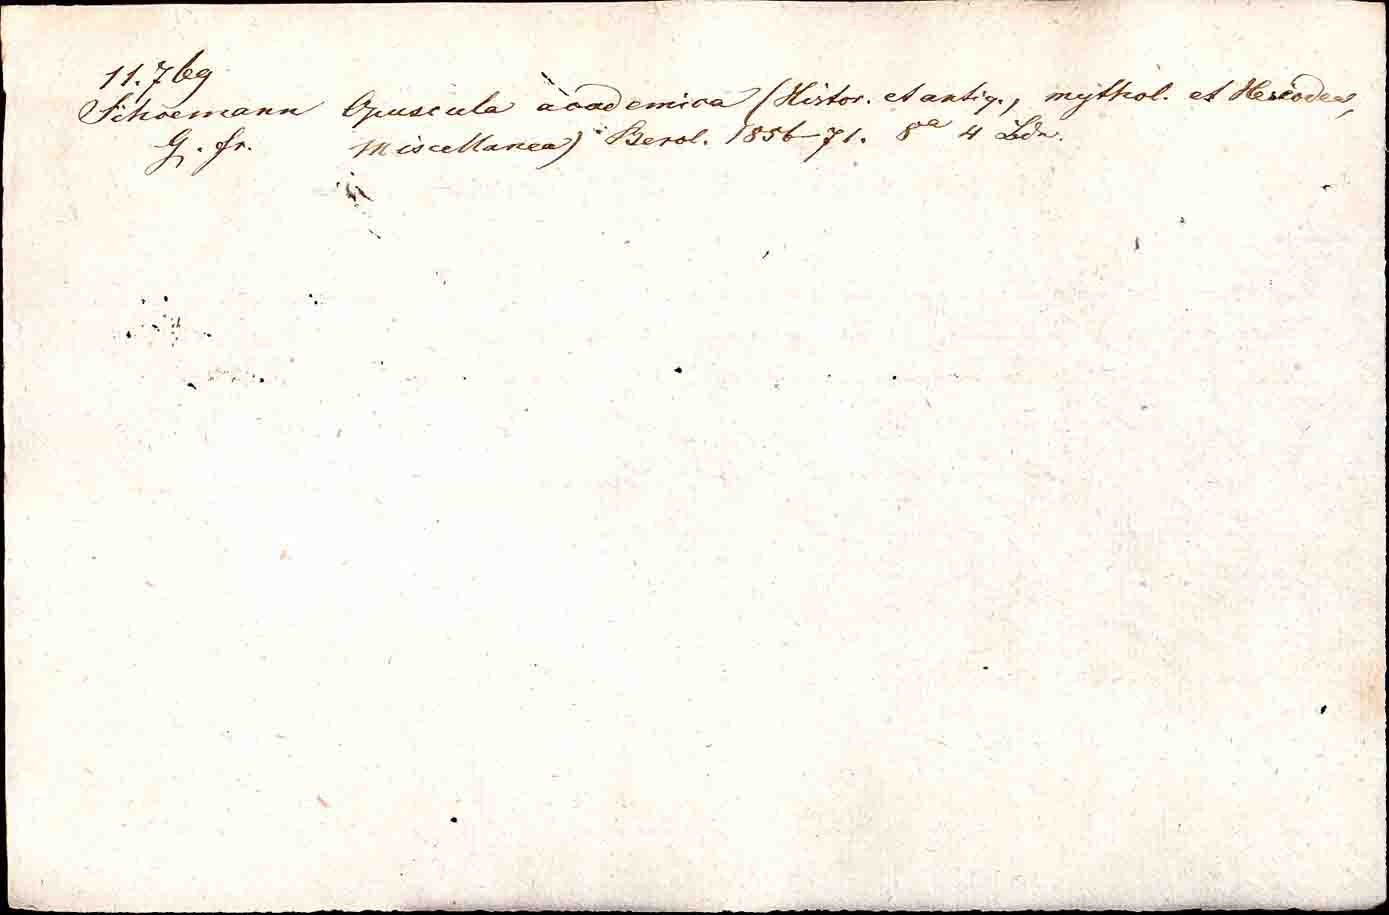 11.769
Schoemann Opuscula academica (Histor. et antiq., mythol. et Hesiodea,
G. Fr. Miscellanea) Berol. 1856-71. 8° 4 Bde.